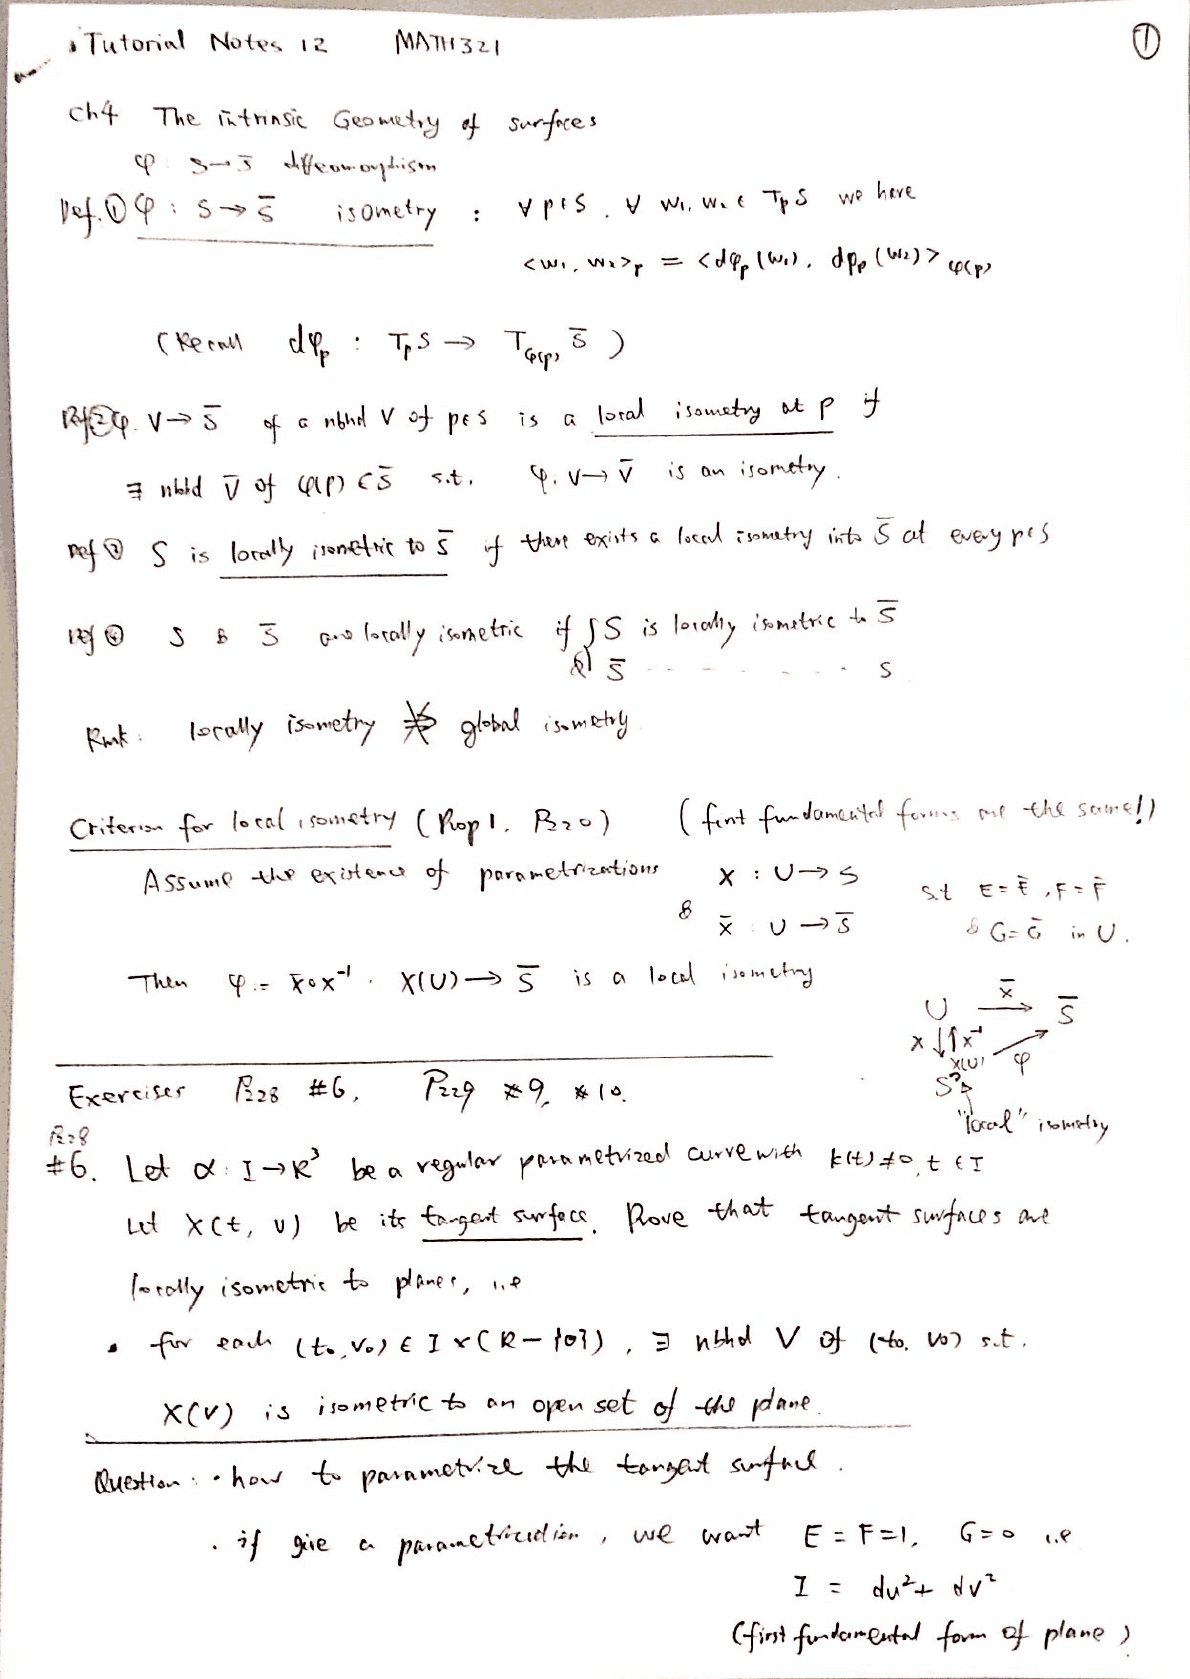 Tutorial Notes 12 MATH321 ①
Ch4 The intrinsic Geometry of surfaces
φ: S→S̄ diffeomorphism
Def.① φ: S→S̄ isometry : ∀p∈S. ∀ w₁, w₂ ∈ TpS we have
<w₁, w₂>p = <dφp(w₁), dφp(w₂)>φ(p)
(Recall dφp : TpS → Tφ(p) S̄ )
Def② φ. V→S̄ of a nbhd V of p∈S is a local isometry at p if
∃ nbhd V̄ of φ(p) ∈ S̄ s.t. φ. V→V̄ is an isometry.
Def③ S is locally isometric to S̄ if there exists a local isometry into S̄ at every p∈S
Def④ S & S̄ are locally isometric if { S is locally isometric to S̄
& S̄ - - - - - - - S
Rmk: locally isometry ⇏ global isometry.
Criterion for local isometry (Prop 1. P220) (first fundamental forms are the same!)
Assume the existence of parametrizations X : U→S s.t E=Ē, F=F̄
& X̄ : U→S̄ & G=Ḡ in U.
Then φ:= X̄∘X⁻¹. X(U)→S̄ is a local isometry
U X̄→ S̄
X ↓↑X⁻¹
X(U) φ
S
"local" isometry
Exercises P228 #6, P229 #9, #10.
P228
#6. Let α: I→R³ be a regular parametrized curve with k(t)≠0, t∈I
Let X(t, v) be its tangent surface. Prove that tangent surfaces are
locally isometric to planes, i.e
• for each (t₀, v₀) ∈ I×(R-{0}), ∃ nbhd V of (t₀, v₀) s.t.
X(V) is isometric to an open set of the plane.
Question: • how to parametrize the tangent surface.
. if give a parametrization, we want E=F=1, G=0 i.e
I = du²+dv²
(first fundamental form of plane)